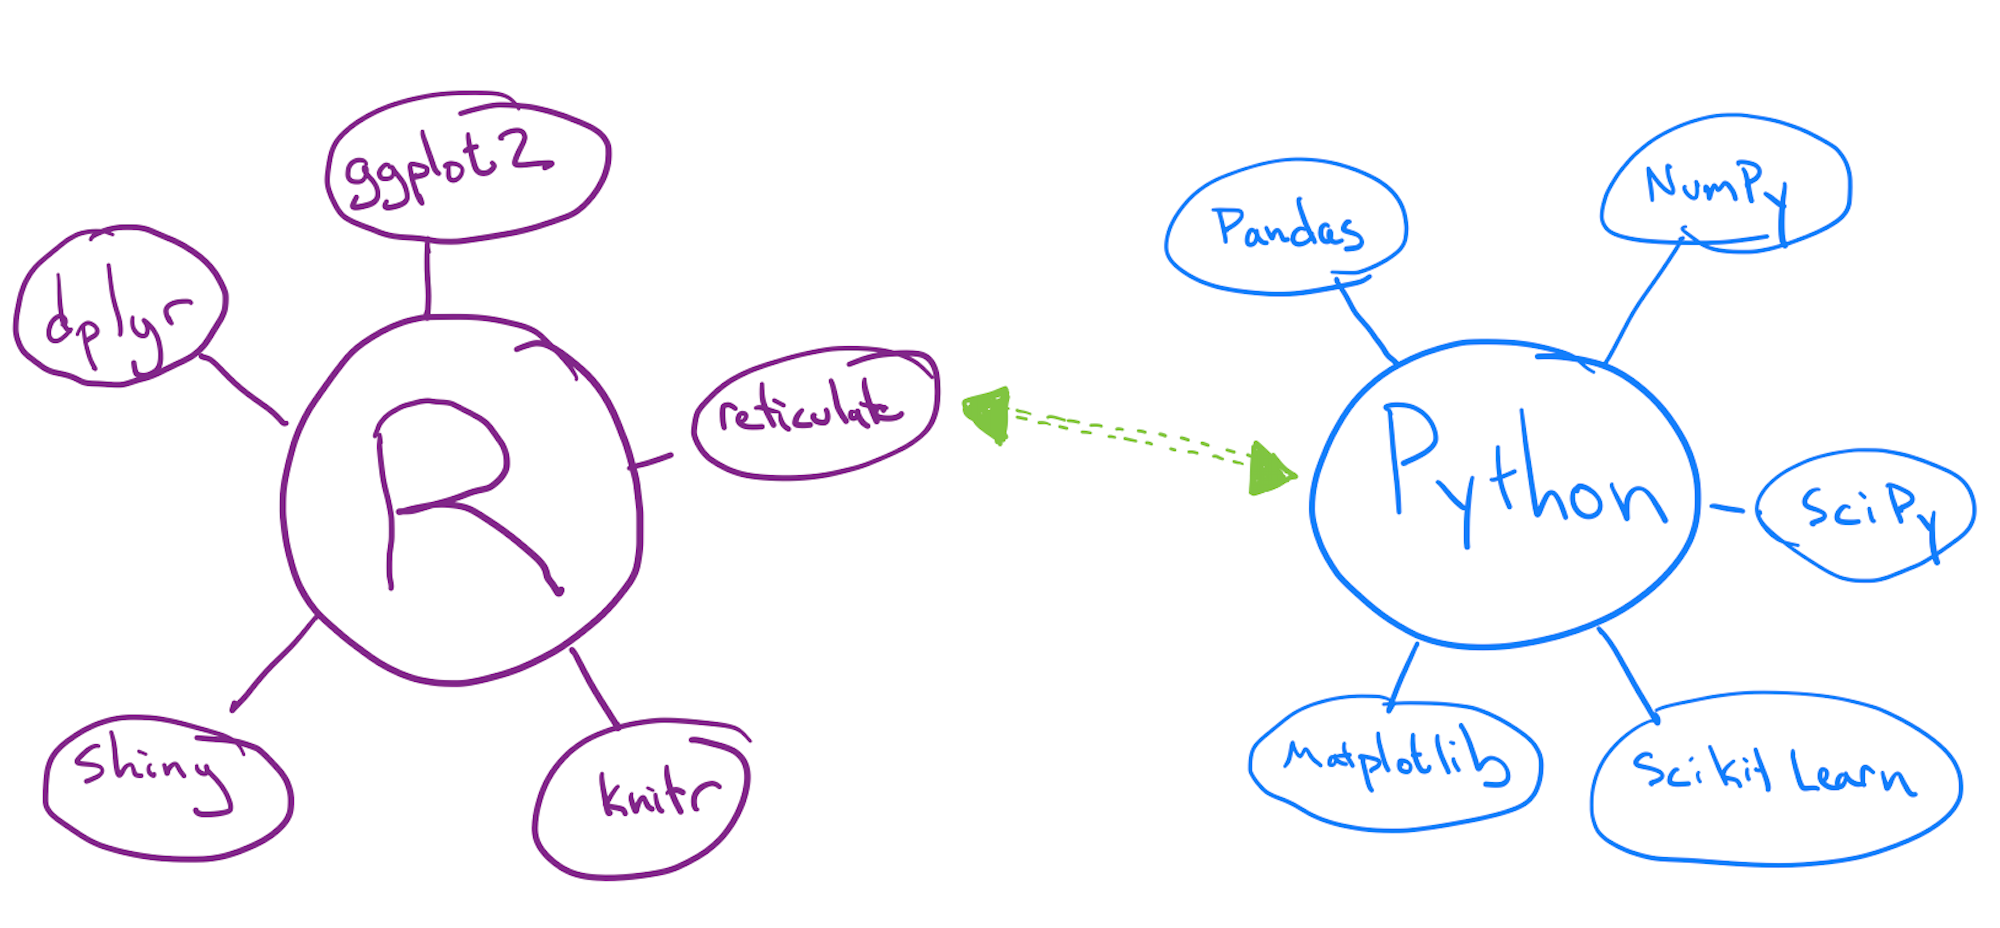 ggplot2
dplyr
R
reticulate
Shiny
knitr
Pandas
NumPy
Python
SciPy
Matplotlib
Scikit Learn